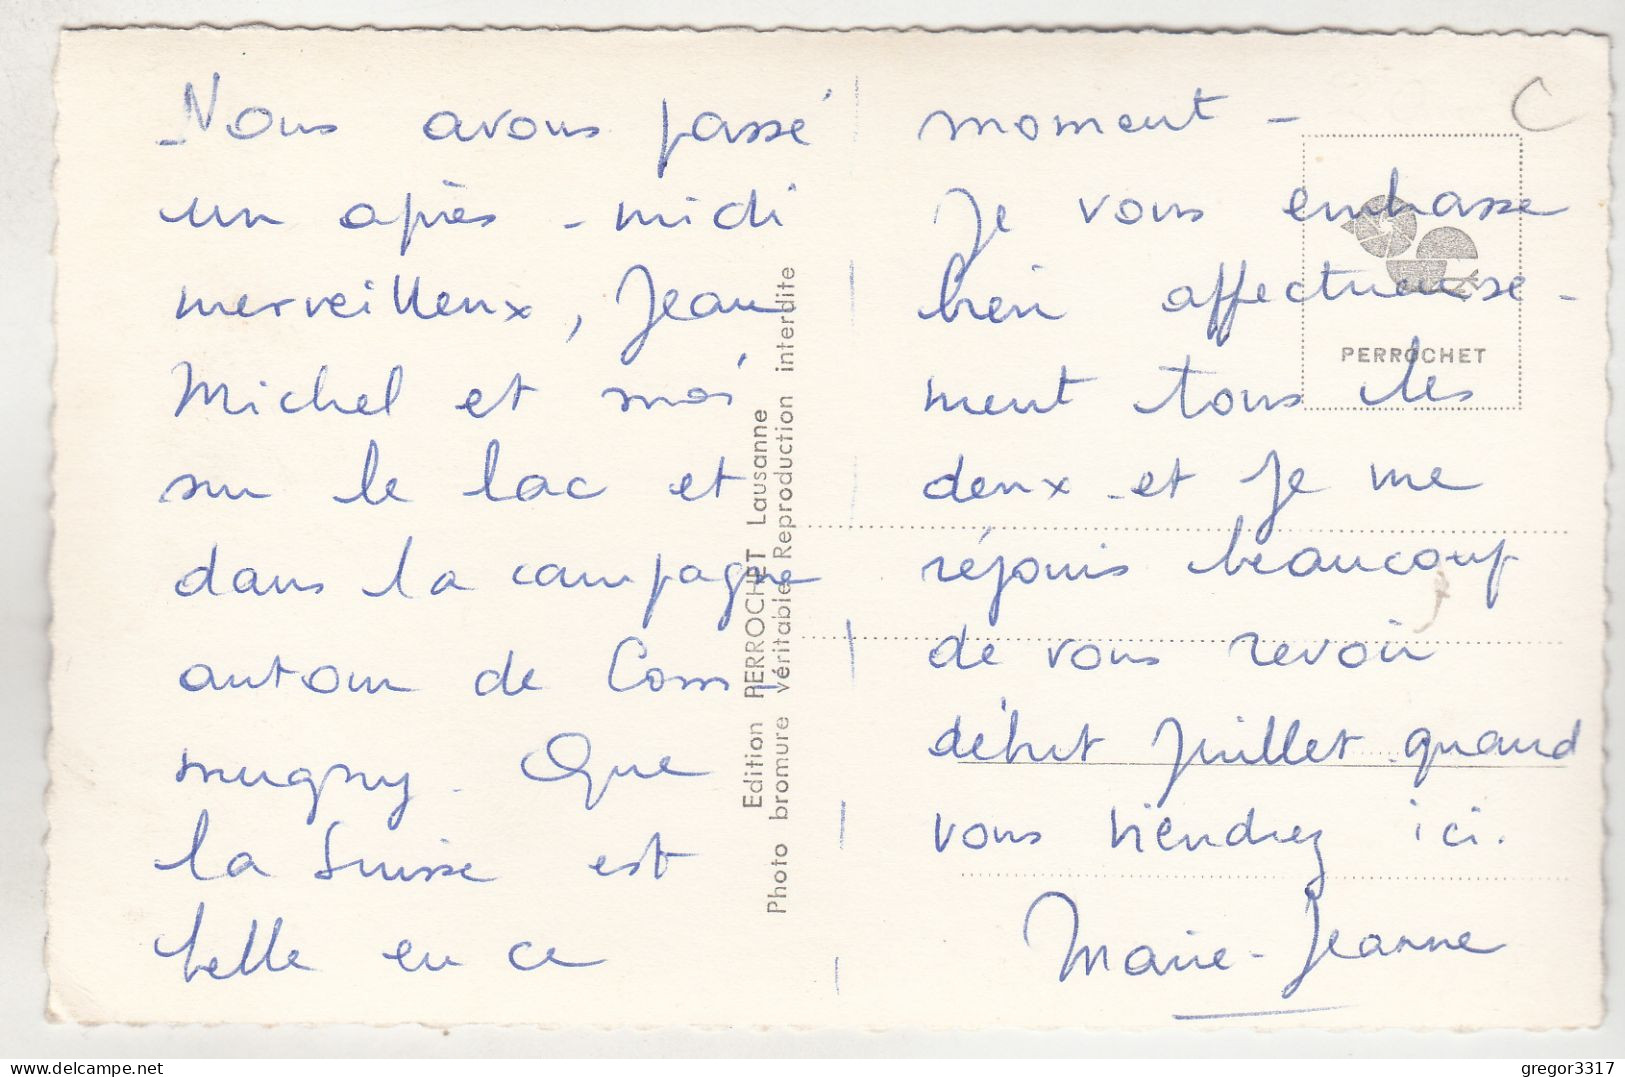 Nous avons passé
un après-midi
merveilleux, Jean
Michel et moi
sur le lac et
dans la campagne
autour de Com-
mugny. Que
la Suisse est
belle en ce
moment -
Je vous embrasse
bien affectueuse-
ment tous les
deux et je me
réjouis beaucoup
de vous revoir
début Juillet quand
vous viendrez ici.
Marie-Jeanne
Edition PERROCHET Lausanne
Photo bromure véritable Reproduction interdite
PERROCHET
C
delcampe.net
gregor3317